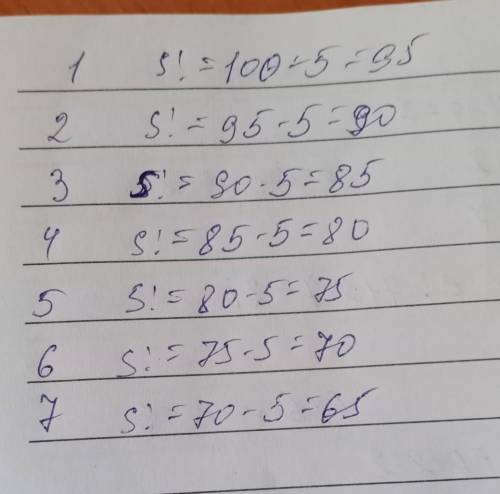 1 S! = 100 - 5 = 95
2 S! = 95 - 5 = 90
3 S! = 90 - 5 = 85
4 S! = 85 - 5 = 80
5 S! = 80 - 5 = 75
6 S! = 75 - 5 = 70
7 S! = 70 - 5 = 65